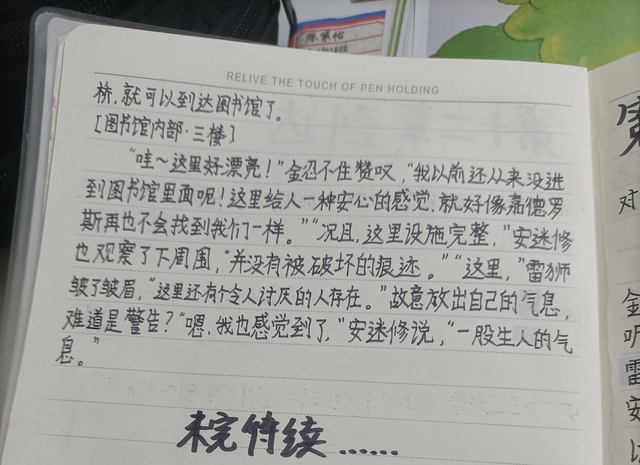 RELIVE THE TOUCH OF PEN HOLDING
株,就可以到达图书馆了。
[图书馆内部·三楼]
"哇~这里好漂亮!"金忍不住赞叹,"我以前还从来没进
到图书馆里面呢!这里给人一种安心的感觉,就好像嘉德罗
斯再也不会找到我们一样。""况且,这里设施完整,"安迷修
也观察了下周围,"并没有被破坏的痕迹。""这里,"雷狮
皱了皱眉,"这里还有个令人讨厌的人存在。"故意放出自己的气息,
难道是警告?"嗯,我也感觉到了,"安迷修说,"一股生人的气
息。"
未完待续......
对
金
叽
雷
安